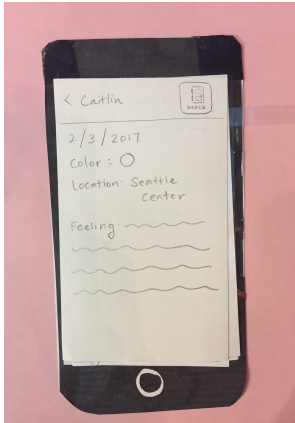 < Caitlin
2/3/2017
Color:
Location: Seattle
Center
Feeling: